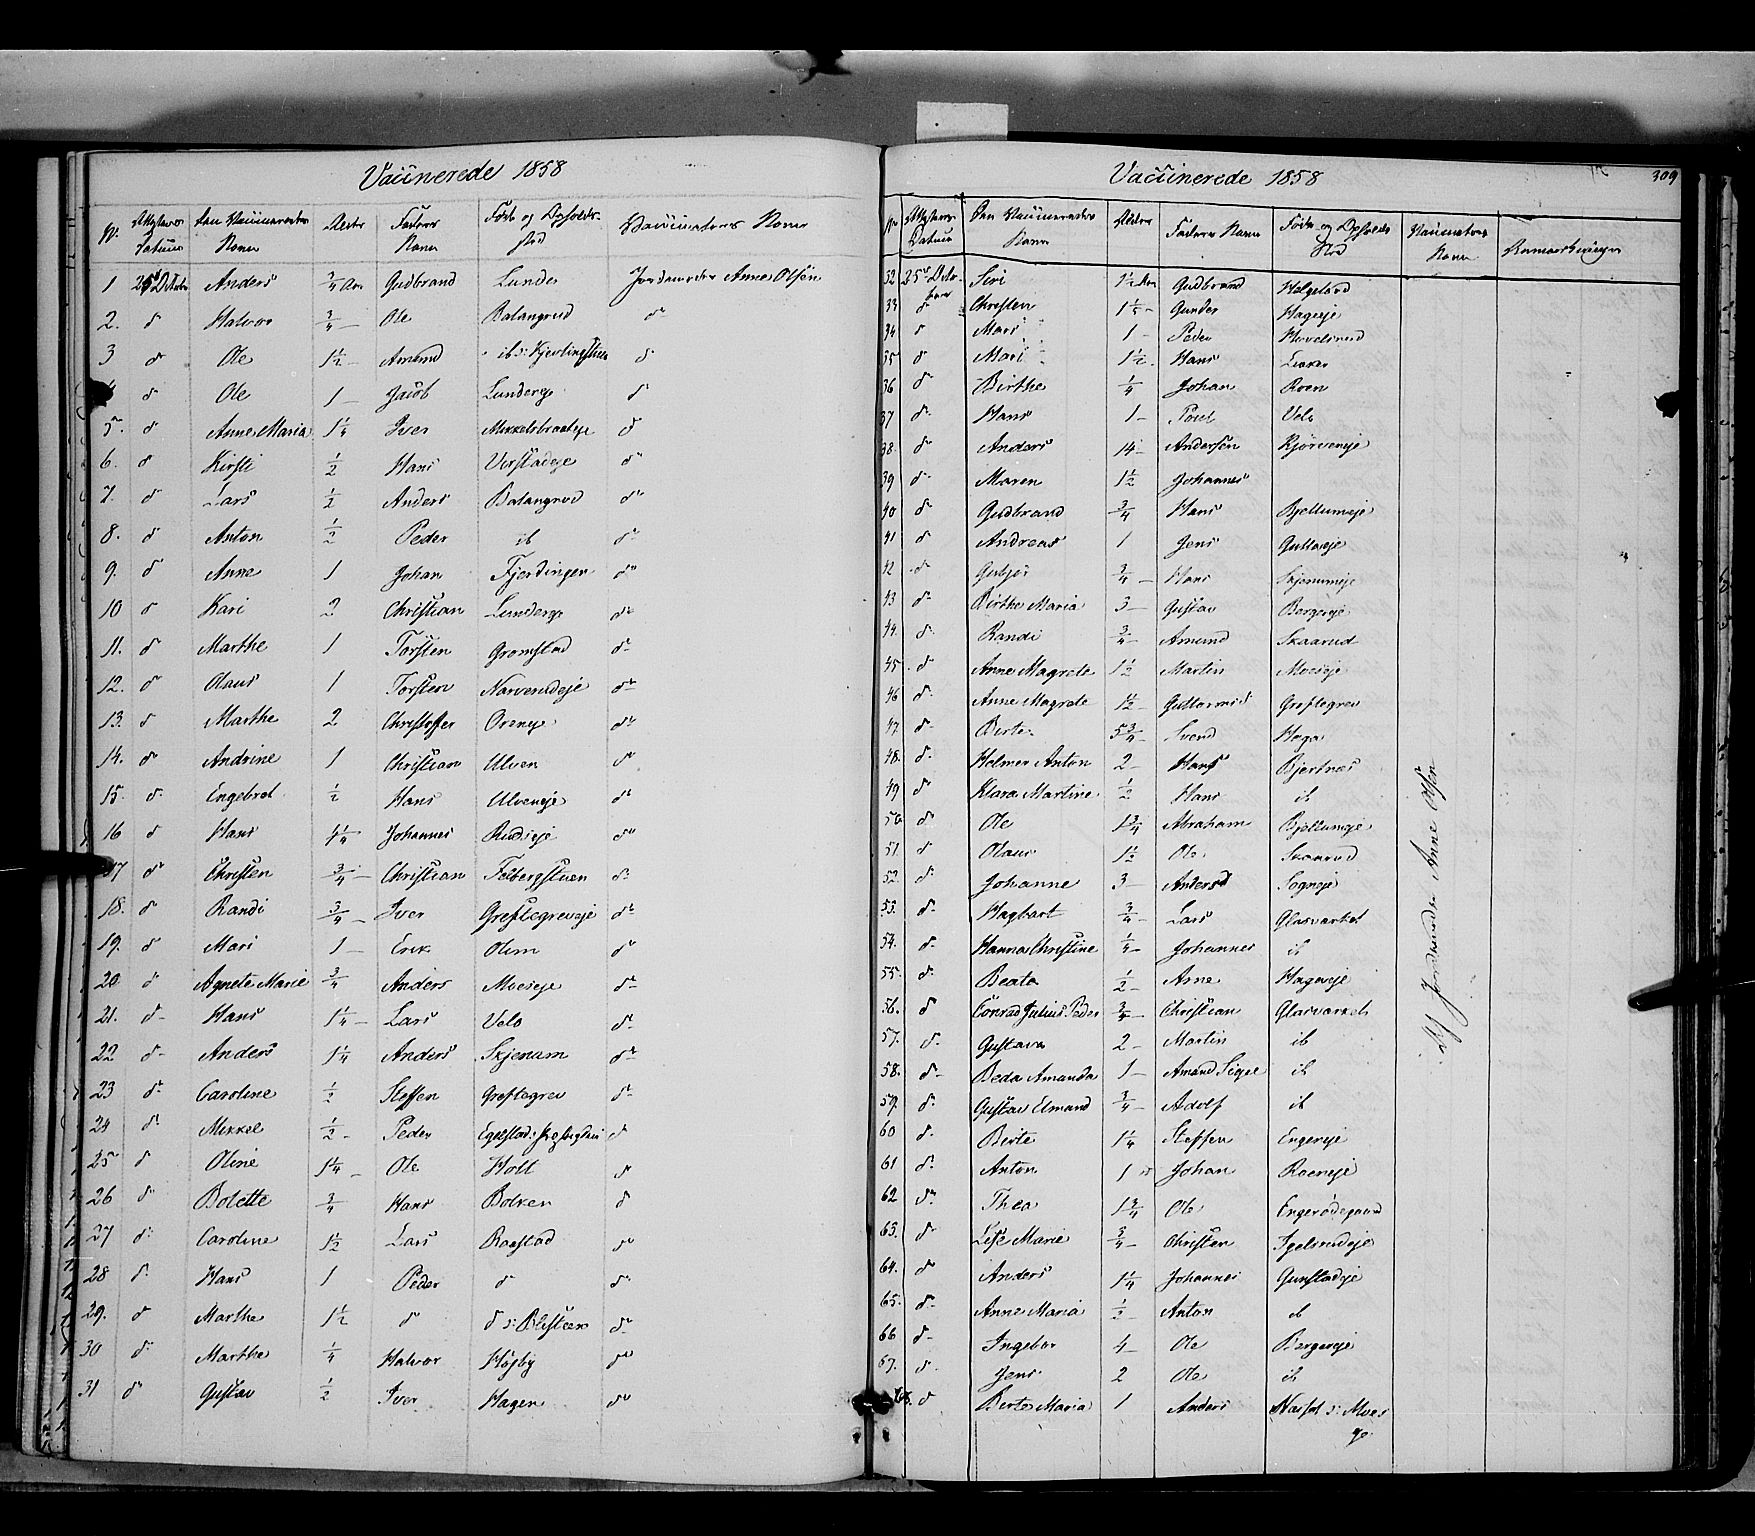 Vaccinerede 1858
No. Attestens Datum Den Vaccineredes Navn Alder Faderens Navn Føde og Opholds-sted Vaccinators Navn
1 25 Octob. Anders 3/4 Aar Gudbrand Lunde Jordmoder Anne Olsen
2. d Halvor 3/4 – Ole Balangrud do
3 d Ole 1 1/2 – Amund ibs: Kjerlingstuen d
d Ole 1 – Jacob Lundeeje d
5. d Anne Maria 1 1/4 Iver Mikkelsbraateje d
6. d Kirsti 1/2 Hans Verstadeje do
7. d Lars 1/2 Anders Balangrud do
8. d Anton 1/2 Peder ib do
9. d Anne 1 Johan Fjerdingen do
10 d Kari 2 Christian Lundeeje do
11. d Marthe 1 Torsten Gromstad do
12. d Olaus 1 Torsten Narverudeje do
13. d Marthe 2 Christoffer Oreneje do
14. d Andrine 1 Christian Ulven do
15. d Engebret 1/2 Hans Ulveneje do
16 d Hans 4 1/4 Johannes Rudseje do
17 d Christen 3/4 – Christian Felbergstuen do
18. d Randi 3/4 – Iver Greftegreveje do
19. d Mari 1 – Erik Olim do
20 d Agnete Marie 3/4 Anders Moeseje do
21. d Hans 1 1/4 – Lars Velo do
22 d Anders 1 1/4 Anders Skjenum do
23 d Caroline 1/2 Steffen Greftegrev do
24 d Mikkel 1/2 – Peder Egelstad d
25 d Oline 1 1/4 – Ole Holt d
26 d Bolette 3/4 Hans Bolken d
27 d Caroline 1 1/2 Lars Raastad do
28 d Hans 1 Peder d do
29. d Marthe 1 1/2 d d s: Blesteen do
30 d Marthe 1/4 Halvor Højby do
31 d Gustav 1/2 Iver Hagen do
Vaccinerede 1858 309
No Attestens Datum Den Vaccineredes Navn Alder Faderens Navn Føde og Opholds Sted Vaccinators Navn Bemærkninger
32 25 Octobr Siri 1 1/2 Aar Gudbrand Helgeland
33 d Christen 1 1/2 – Gunder Hageeje
34 d Mari 1 – Peder Hovelsrud
35 d Mari 1 1/2 Hans
36 d Birthe 1/4 Johan Roen
37 d Hans 1 – Poul Velo
38. d Anders 14 – Andersen Kjørveneje
39 d Maren 1 1/2 Johannes
40 d Gudbrand 3/4 Hans Bjellumeje
41 d Andreas 1 Jens Gulleeje
42 d Gubjør 3/4 – Hans Skjenumeje
43 d Birthe Maria 3 – Gustav Bergereje
44. d Randi 3/4 – Amund Skaarud
45. d Anne Magrete 1 1/2 Martin Moeseje
46 d Anne Magrete 1 1/2 – Guttormsd Greftegrev
47. d Birte 5 3/4 – Svend Haga
48. d Helmer Anton 2 – Hans Bjertnæs
49 d Klara Martine 1/2 Hans ib
50 d Ole 1 3/4 Abraham Bjellumeje
51. d Olaus 1 1/2 Ole Skaarud
52. d Johanne 3 – Anders Sogneje
53. d Hagbart 3/4 – Lars Glasværket
54. d Hanna Christine 1/4 – Johannes ib
55. d Beata 1/2 – Arne Hageeje
56. d Conrad Julius Peder 3/4 – Christian Glasværket
57. d Gustava 2 – Martin ib
58. d Beda Amanda 1 – Amand Sigel ib
59. d Gustav Edmand 3/4 – Adolf ib
60 d Birte 1 1/4 Steffen Engereje
61 d Anton 1 Johan Roeneje
62 d Thea 1 3/4 Ole Engerødegaard
63. d Lise Marie 3/4 – Christen Igelsrudeje
64. d Anders 1 1/4 Johannes Gunstadeje
65. d Anne Maria 1/2 – Anton ib
66 d Ingebor 4 – Ole Bergereje
67. d Jens 2 Ole ib
68. d Berte Maria 1 Anders Næsset s: Moes eje
Af Jordmoder Anne Olsen